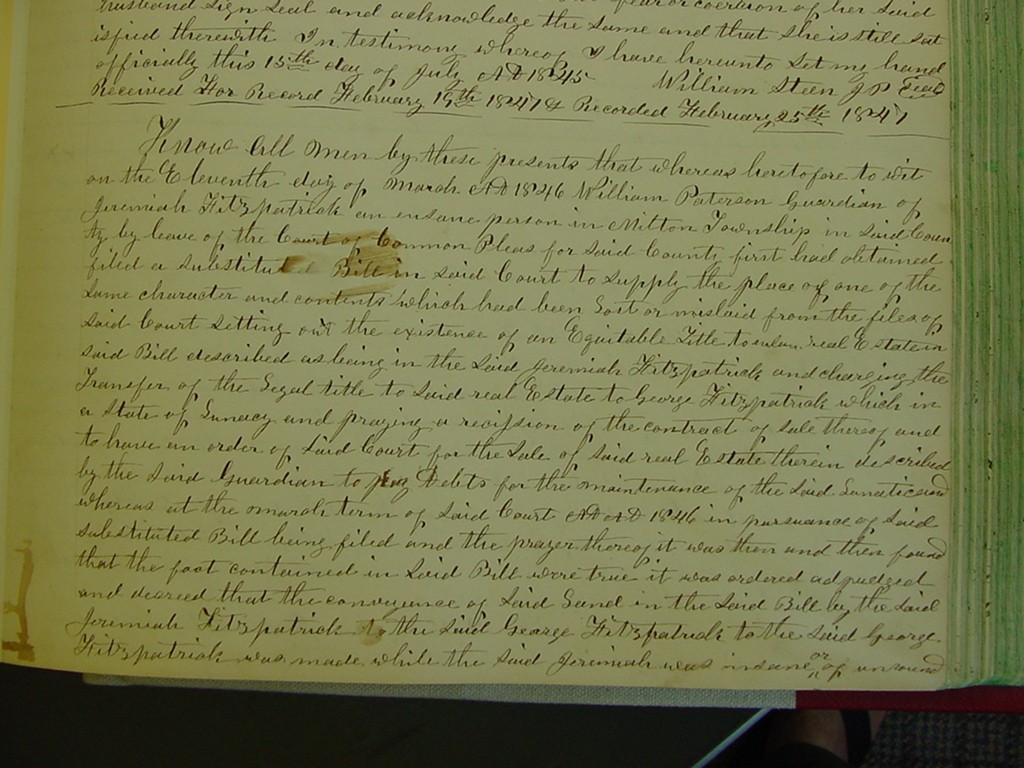 husband sign seal and acknowledge the same and that she is still sat
isfied therewith In testimony whereof I have hereunto set my hand
officially this 15th day of July AD 1845 William Steen JP Seal
Received For Record February 19th 1847 & Recorded February 25th 1847
Know All Men by these presents that whereas heretofore to wit
on the Eleventh day of March AD 1846 William Paterson Guardian of
Jeremiah Fitzpatrick an ensane person in Milton Township in said Coun
ty by leave of the Court of Common Pleas for said County first had obtained
filed a substitute Bill in said Court to supply the place of one of the
same character and contents which had been lost or mislaid from the files of
said Court setting out the existence of an Equitable Title to real Estate in
said Bill described as being in the said Jeremiah Fitzpatrick and charging the
Transfer of the Legal title to said real Estate to George Fitzpatrick which in
a State of Lunacy and praying a recission of the contract of sale thereof and
to have an order of said Court for the sale of said real Estate therein described
by the said Guardian to pay debts for the maintenance of the said Lunatic and
whereas at the march term of said Court AD AD 1846 in pursuance of said
substituted Bill being filed and the prayer thereof it was then and then found
that the fact contained in said Bill were true it was ordered adpudged
and decreed that the conveyance of said Land in the said Bill by the said
Jeremiah Fitzpatrick to the said George Fitzpatrick to the said George
Fitzpatrick was made while the said Jeremiah was insane or of unsound